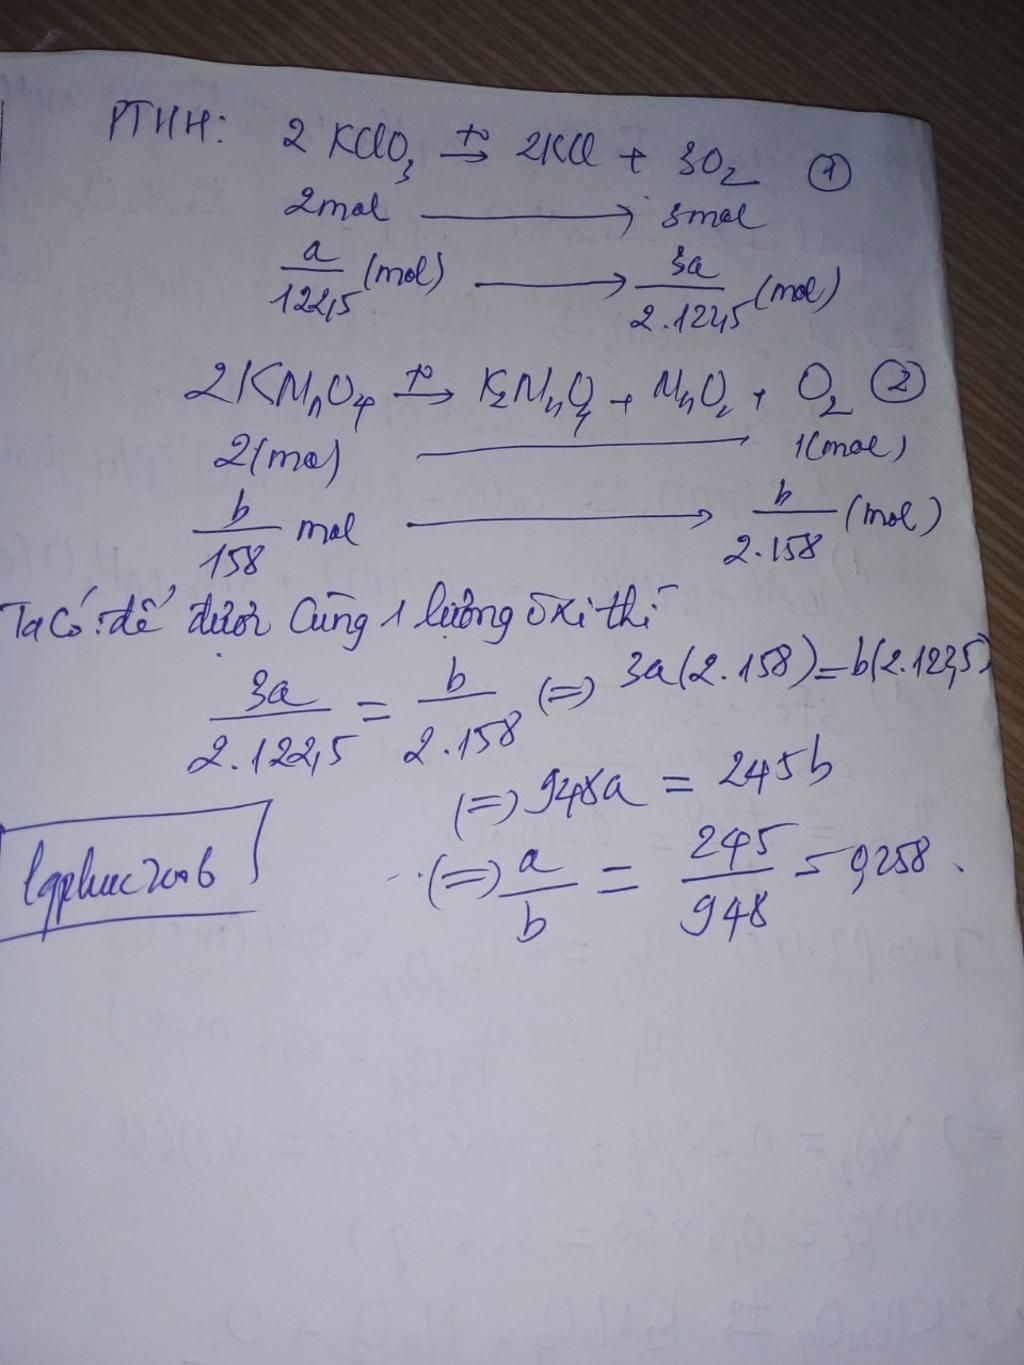 PTHH: 2 KClO₃ →(t⁰) 2KCl + 3O₂ ①
2mol ⟶ 3mol
a/122,5 (mol) ⟶ 3a/2.122,5 (mol)
2KMnO₄ →(t⁰) K₂MnO₄ + MnO₂ + O₂ ②
2(mol) ⟶ 1(mol)
b/158 mol ⟶ b/2.158 (mol)
Ta có: để được cùng 1 lượng ôxi thì
3a/2.122,5 = b/2.158 (=) 3a(2.158) = b(2.122,5)
(=) 948a = 245b
(=) a/b = 245/948 = 0,258.
lqphuc2006